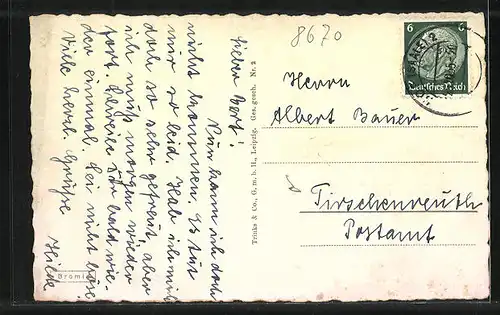 8670
6 6
Deutsches Reich
Lieber Bert!
Nun kann ich doch
nicht kommen. Es tut
mir so leid. Hab ich mich
doch so sehr gefreut, aber
ich muß morgen wieder
fort. Schreibe Dir bald wie-
der einmal. Sei nicht böse!
Viele herzl. Grüße
Hilde
Trinks & Co., G. m. b. H., Leipzig. Ges. gesch. Nr. 2
Herrn
Albert Bauer
Tirschenreuth
Postamt